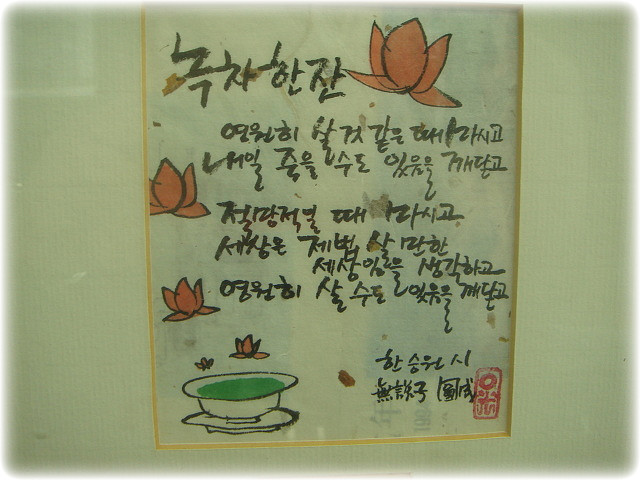 녹차 한잔
영원히 살 것 같은 때 마시고
내일 죽을 수도 있음을 깨닫고
절망적일 때 마시고
세상은 제법 살만한
세상임을 생각하고
영원히 살 수도 있음을 깨닫고
한승원 시
無說子